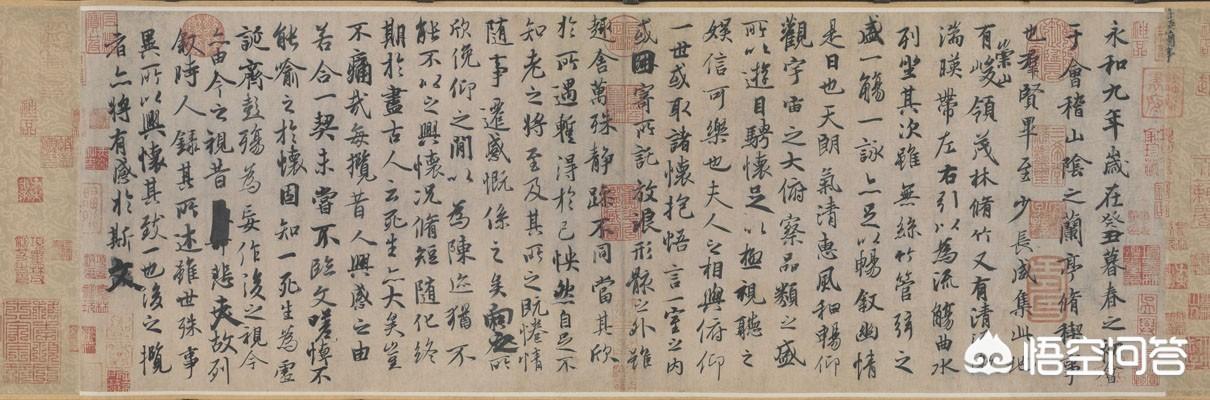 永和九年歲在癸丑暮春之初會
于會稽山陰之蘭亭脩稧事
也羣賢畢至少長咸集此地
有崇山峻領茂林脩竹又有清流激
湍暎帶左右引以為流觴曲水
列坐其次雖無絲竹管弦之
盛一觴一詠亦足以暢叙幽情
是日也天朗氣清惠風和暢仰
觀宇宙之大俯察品類之盛
所以遊目騁懷足以極視聽之
娛信可樂也夫人之相與俯仰
一世或取諸懷抱悟言一室之內
或因寄所託放浪形骸之外雖
趣舍萬殊靜躁不同當其欣
於所遇暫得於己怏然自足不
知老之將至及其所之既惓情
隨事遷感慨係之矣向之所
欣俛仰之閒以為陳迹猶不
能不以之興懷況脩短隨化終
期於盡古人云死生亦大矣豈
不痛哉每攬昔人興感之由
若合一契未嘗不臨文嗟悼不
能喻之於懷固知一死生為虛
誕齊彭殤為妄作後之視今
亦由今之視昔悲夫故列
叙時人錄其所述雖世殊事
異所以興懷其致一也後之攬
者亦將有感於斯文
悟空问答